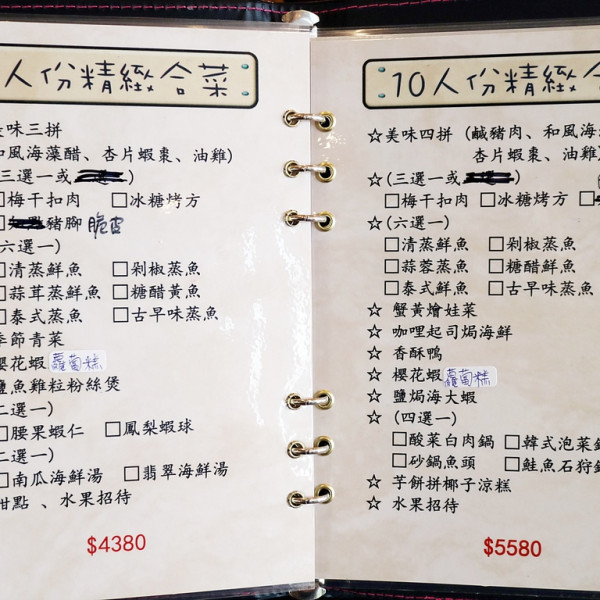 人份精緻合菜
味三拼
和風海藻醋、杏片蝦棗、油雞)
(三選一或)
□梅干扣肉 □冰糖烤方
豬腳 脆皮
六選一)
□清蒸鮮魚 □剁椒蒸魚
□蒜茸蒸鮮魚 □糖醋黃魚
□泰式蒸魚 □古早味蒸魚
季節青菜
櫻花蝦蘿蔔糕
鹽魚雞粒粉絲煲
二選一)
□腰果蝦仁 □鳳梨蝦球
二選一)
□南瓜海鮮湯 □翡翠海鮮湯
甜點 、水果招待
$4380
10人份精緻合
☆美味四拼 (鹹豬肉、和風海
杏片蝦棗、油雞)
☆(三選一或)
□梅干扣肉 □冰糖烤方
☆(六選一)
□清蒸鮮魚 □剁椒蒸魚
□蒜蓉蒸魚 □糖醋鮮魚
□泰式鮮魚 □古早味蒸魚
☆ 蟹黃燴娃菜
☆ 咖哩起司焗海鮮
☆ 香酥鴨
☆ 櫻花蝦蘿蔔糕
☆ 鹽焗海大蝦
☆ (四選一)
□酸菜白肉鍋 □韓式泡菜鍋
□砂鍋魚頭 □鮭魚石狩鍋
☆ 芋餅拼椰子涼糕
☆ 水果招待
$5580